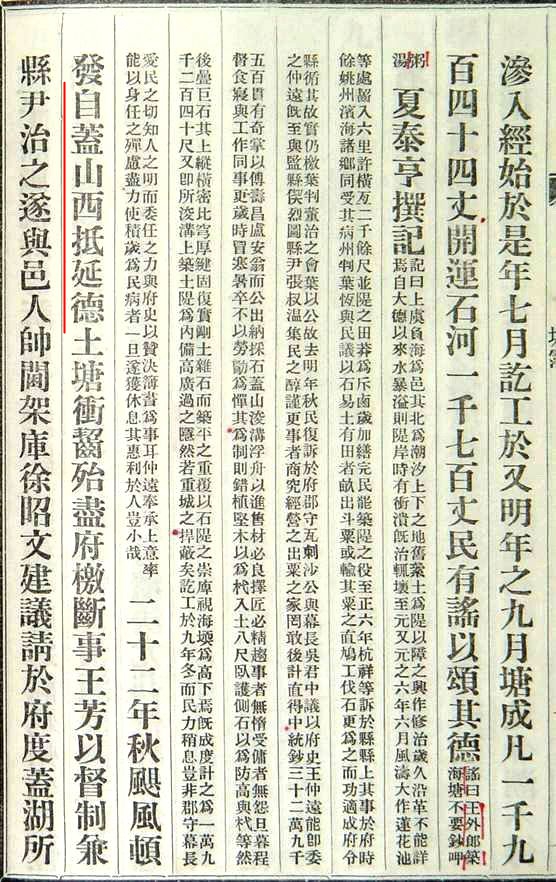 滲入經始於是年七月訖工於又明年之九月塘成凡一千九
百四十四丈開運石河一千七百丈民有謠以頌其德
謠曰王外郎築
海塘不要鈔呷
粥
湯
夏泰亨撰記
記曰上虞負海為邑其北為潮汐上下之地舊築土為隄以障之興作修治歲久沿革不能詳
焉自大德以來水暴溢則隄岸時有衝潰旣治輒壞至元又元之六年六月風濤大作蓮花池
等處齧入六里許橫亙二千餘尺並隄之田莽為斥鹵歲加繕完民罷築隄之役至正六年杭祥等訴於縣縣上其事於府時
餘姚州濱海諸鄉同受其病州判葉恆與民議以石易土有田者畝出斗粟或輸其粟之直鳩工伐石更為之而功適成府令
縣循其故實仍檄葉判董治之會葉以公故去明年秋民復訴於府郡守瓦剌沙公與幕長吳君中議以府史王仲遠能卽委
之仲遠旣至與監縣偰烈圖縣尹張叔温集民之醇謹更事者商究經營之出粟之家罔敢後計直得中統鈔三十二萬九千
五百貫有奇掌以傅壽昌盧安翁而公出納採石蓋山浚溝浮舟以進售材必良擇匠必精趨事者無惰受傭者無怨旦暮程
督食寢與工作同事更歲時冒寒暑卒不以勞勩為憚其為制則錯植堅木以為杙入土八尺臥護側石以為防高與杙等然
後疊巨石其上縱橫密比穹厚鍵固復實剛土雜石而築平之重覆以石隄之崇庳視海堧為高下焉旣成度計之為一萬九
千二百四十尺又卽所浚溝上築土隄為內備高廣過之隱然若重城之捍蔽矣訖工於九年冬而民力稍息豈非郡守幕長
愛民之切知人之明而委任之力與府史以贊決簿書為事耳仲遠奉承上意率
能以身任之殫慮盡力使積歲為民病者一旦遂獲休息其惠利於人豈小哉
二十二年秋颶風頓
發自蓋山西抵延德土塘衝齧殆盡府檄斷事王芳以督制兼
縣尹治之遂與邑人帥閫架庫徐昭文建議請於府度蓋湖所